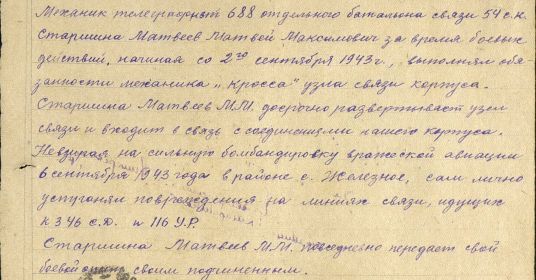 Механик телеграфист 688 отдельного батальона связи 54 с.к.
Старшина Матвеев Матвей Максимович за время боевых
действий, начиная со 2го сентября 1943 г., выполнял обя
занности механика „кросса" узла связи корпуса.
Старшина Матвеев М.М. досрочно развертывает узел
связи и входит в связь с соединениями нашего корпуса.
Невзирая на сильную бомбандировку вражеской авиации
6 сентября 1943 года в районе с. Железное, сам лично
устранял повреждения на линиях связи, идущих
к 346 с.д. и 116 У.Р.
Старшина Матвеев М.М. повседневно передает свой
боевой опыт своим подчиненным.